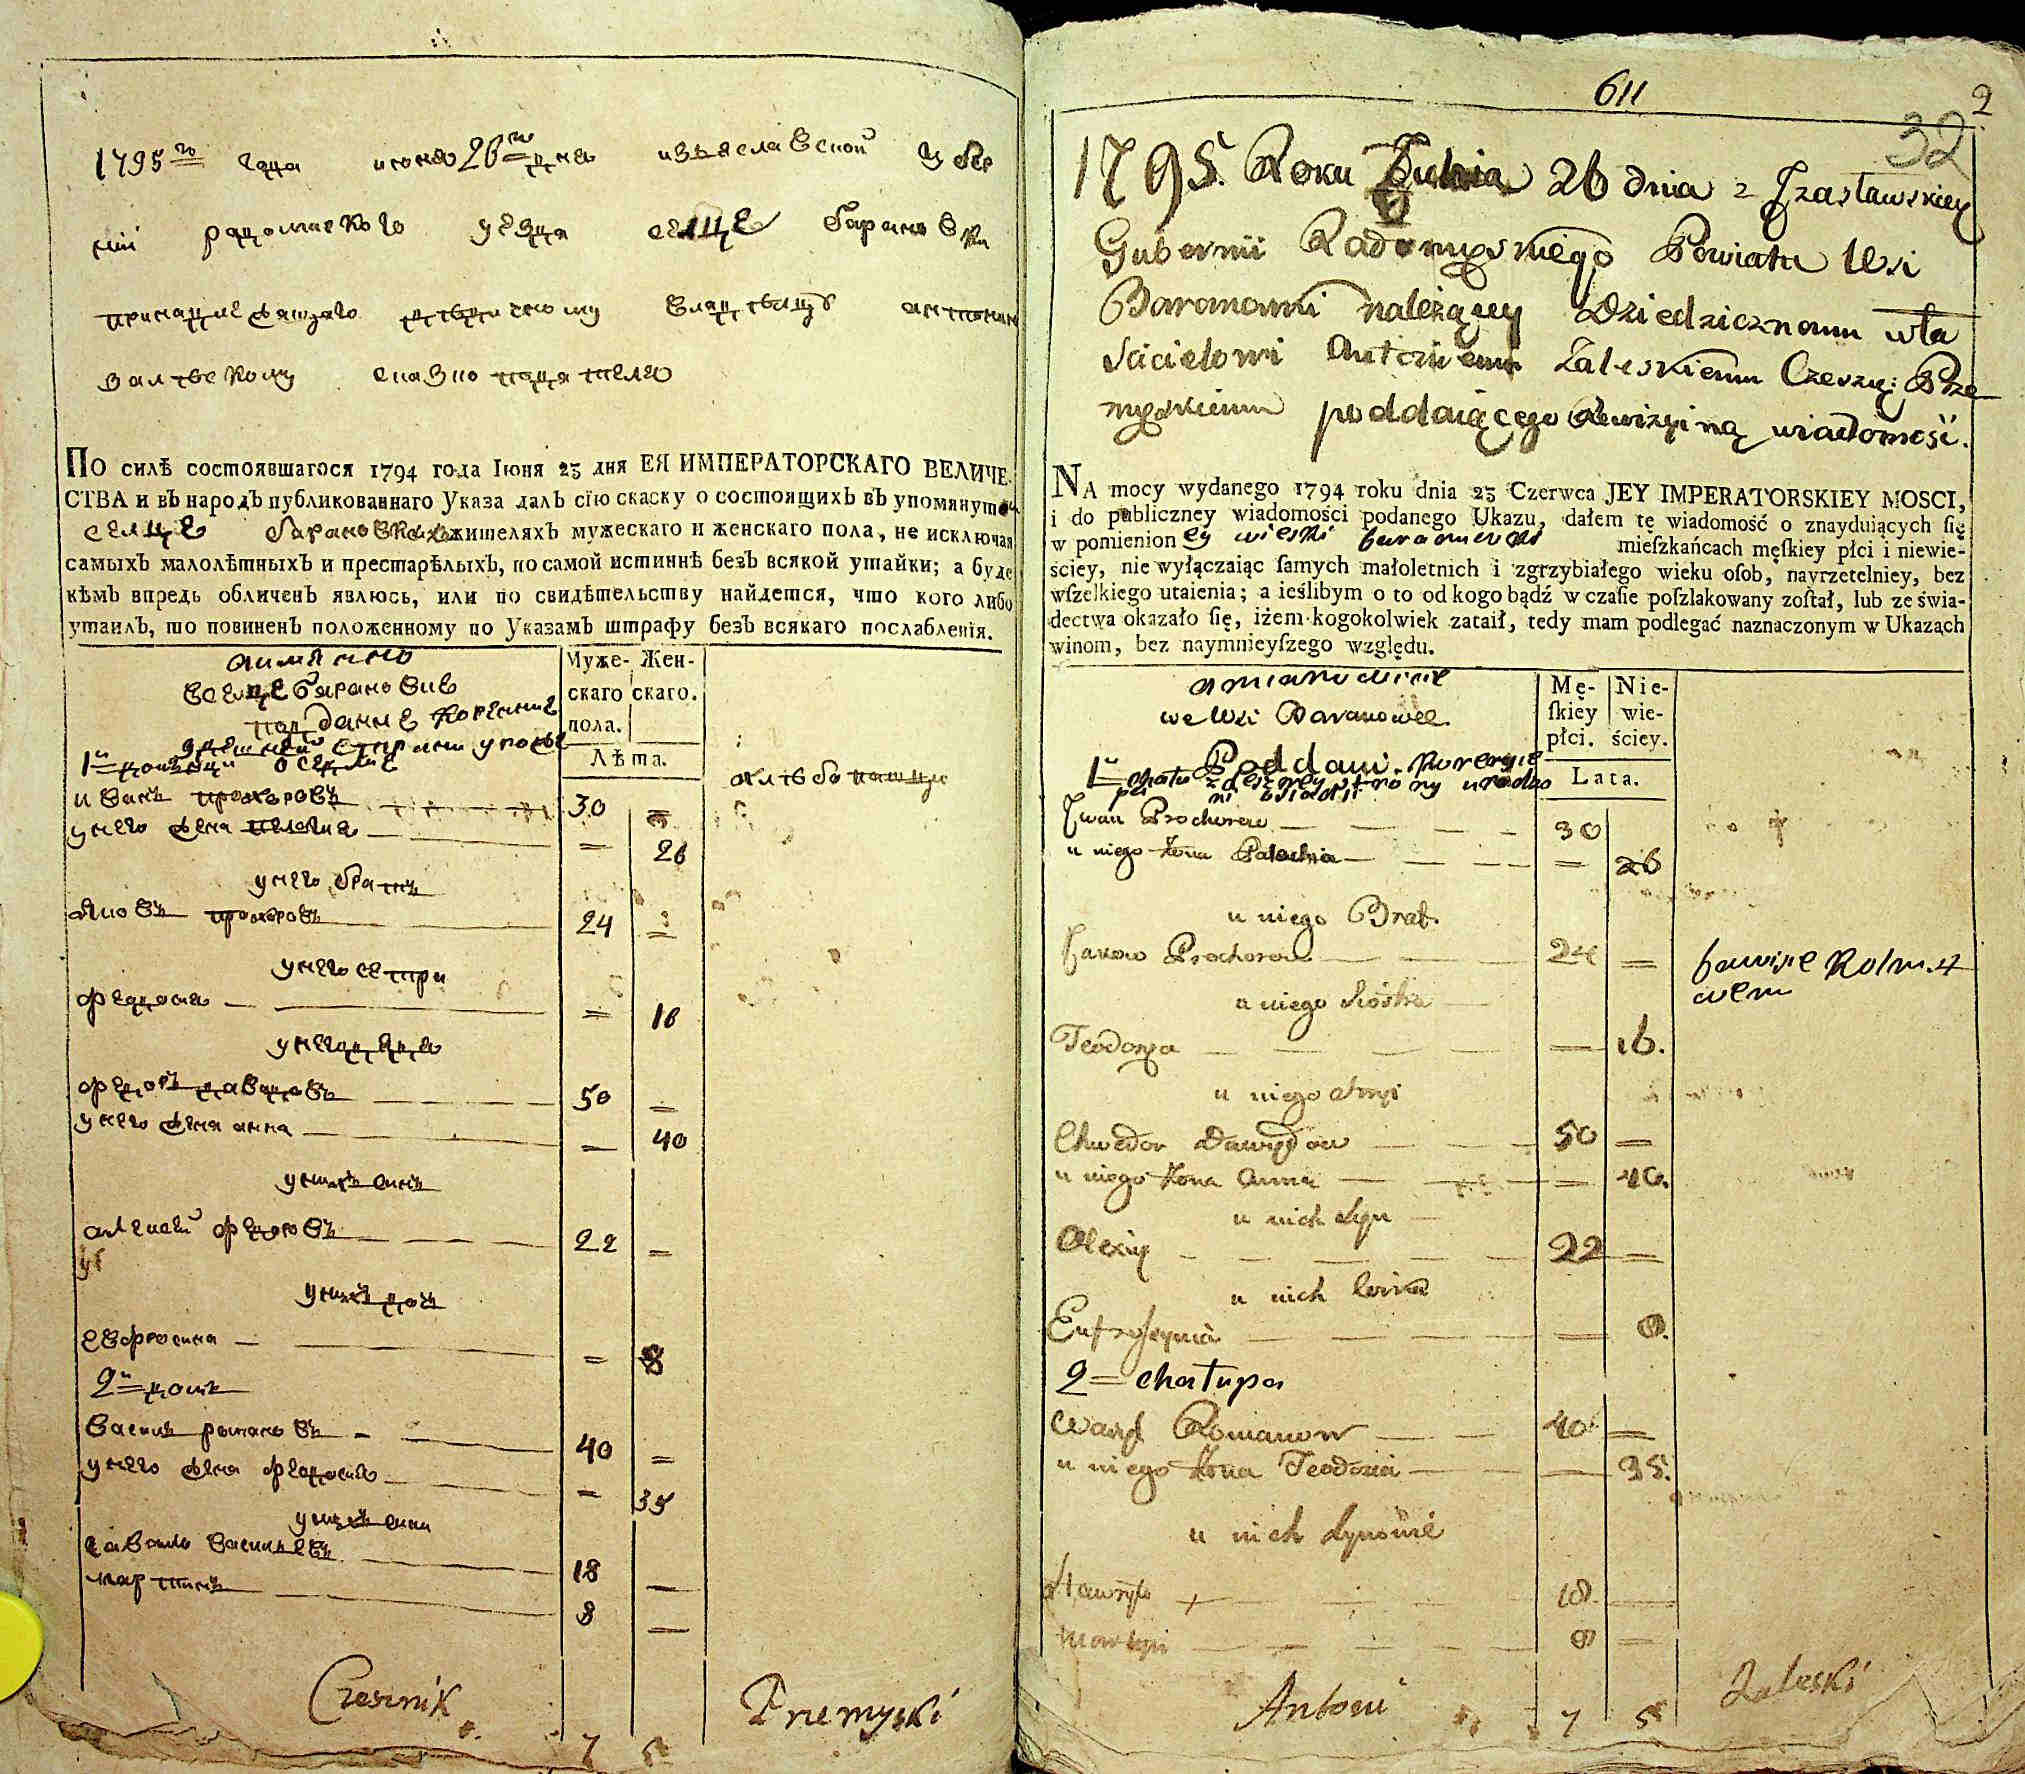 1795го года июня 26го дня изяславской губер
нии радомиского уезда селце барановки
принадлежащаго дедичному владельцу антонию
залескому сказкоподателю
По силѣ состоявшагося 1794 года Іюня 23 дня ЕЯ ИМПЕРАТОРСКАГО ВЕЛИЧЕ-
СТВА и въ народъ публикованнаго Указа далъ сїю скаску о состоящихъ въ упомянутой
селце барановках жителяхъ мужескаго и женскаго пола, не исключая
самыхъ малолѣтныхъ и престарѣлыхъ, по самой истиннѣ безъ всякой утайки; а буде
кѣмъ впредь обличенъ явлюсь, или по свидѣтельству найдется, что кого либо
утаилъ, то повиненъ положенному по Указамъ штрафу безъ всякаго послабленїя.
а имянно
в селце барановке
подданые коренные
1й
Муже- Жен-
скаго скаго.
пола.
Лѣта.
иванъ прохоровъ 30 =
у него жена пелагия = 26
у него братъ
яковъ прохоровъ 24 =
у него сестри
федосия = 16
у него дядя
федоръ давидовъ 50 =
у него жена анна = 40
у нихъ синъ
алексей федоровъ 22 =
у нихъ дочь
евфросина = 8
2й домъ
василь романовъ 40 =
у него жена федосия = 35
у нихъ сини
гаврило васильевъ 18 =
мартинъ 8 =
Czesznik Przemyski
7 5
611
2
32
1795. Roku Juhia 26 dnia z Jzasławskiey
Gubernii Radomyskiego Powiatu Wsi
Baranowki należącey Dziedzicznemu wła
scicielowi Antoniemu Zaleskiemu Czeszn: Prze
myskiemu poddaiącego Rewizyiną wiadomość.
NA mocy wydanego 1794 roku dnia 23 Czerwca JEY IMPERATORSKIEY MOSCI,
i do publiczney wiadomości podanego Ukazu, dałem tę wiadomość o znayduiących ſię
w pomienioney wioski baranowki mieſzkańcach męſkiey płci i niewie-
ściey, nie wyłączaiąc ſamych małoletnich i zgrzybiałego wieku oſob, nayrzetelniey, bez
wſzelkiego utaienia; a ieślibym o to od kogo bądź w czaſie poſzlakowany zoſtał, lub ze świa-
dectwa okazało ſię, iżem kogokolwiek zataił, tedy mam podlegać naznaczonym w Ukazach
winom, bez naymnieyſzego względu.
a mianowicie
we Wsi Baranowce
Poddani korenyie
1
Mę- Nie-
ſkiey wie-
płci. ściey.
Lata.
Jwan Prochorow 30
u niego żona Palachia = 26
u niego Brat.
Jakow Prochorow 24 =
u niego Siostra
Teodozya 16.
u niego stryi
Chwedor Dawydow 50 =
u niego żona Anna = 40.
u nich Syn
Olexiy 22 =
u nich Corka
Eufrosynia 8.
2 = chałupa
Wasyl Romanow 40 =
u niego żona Teodozia 35.
u nich Synowie
Hawryło 18
Martyn 8
Antoni Zaleski
7 5